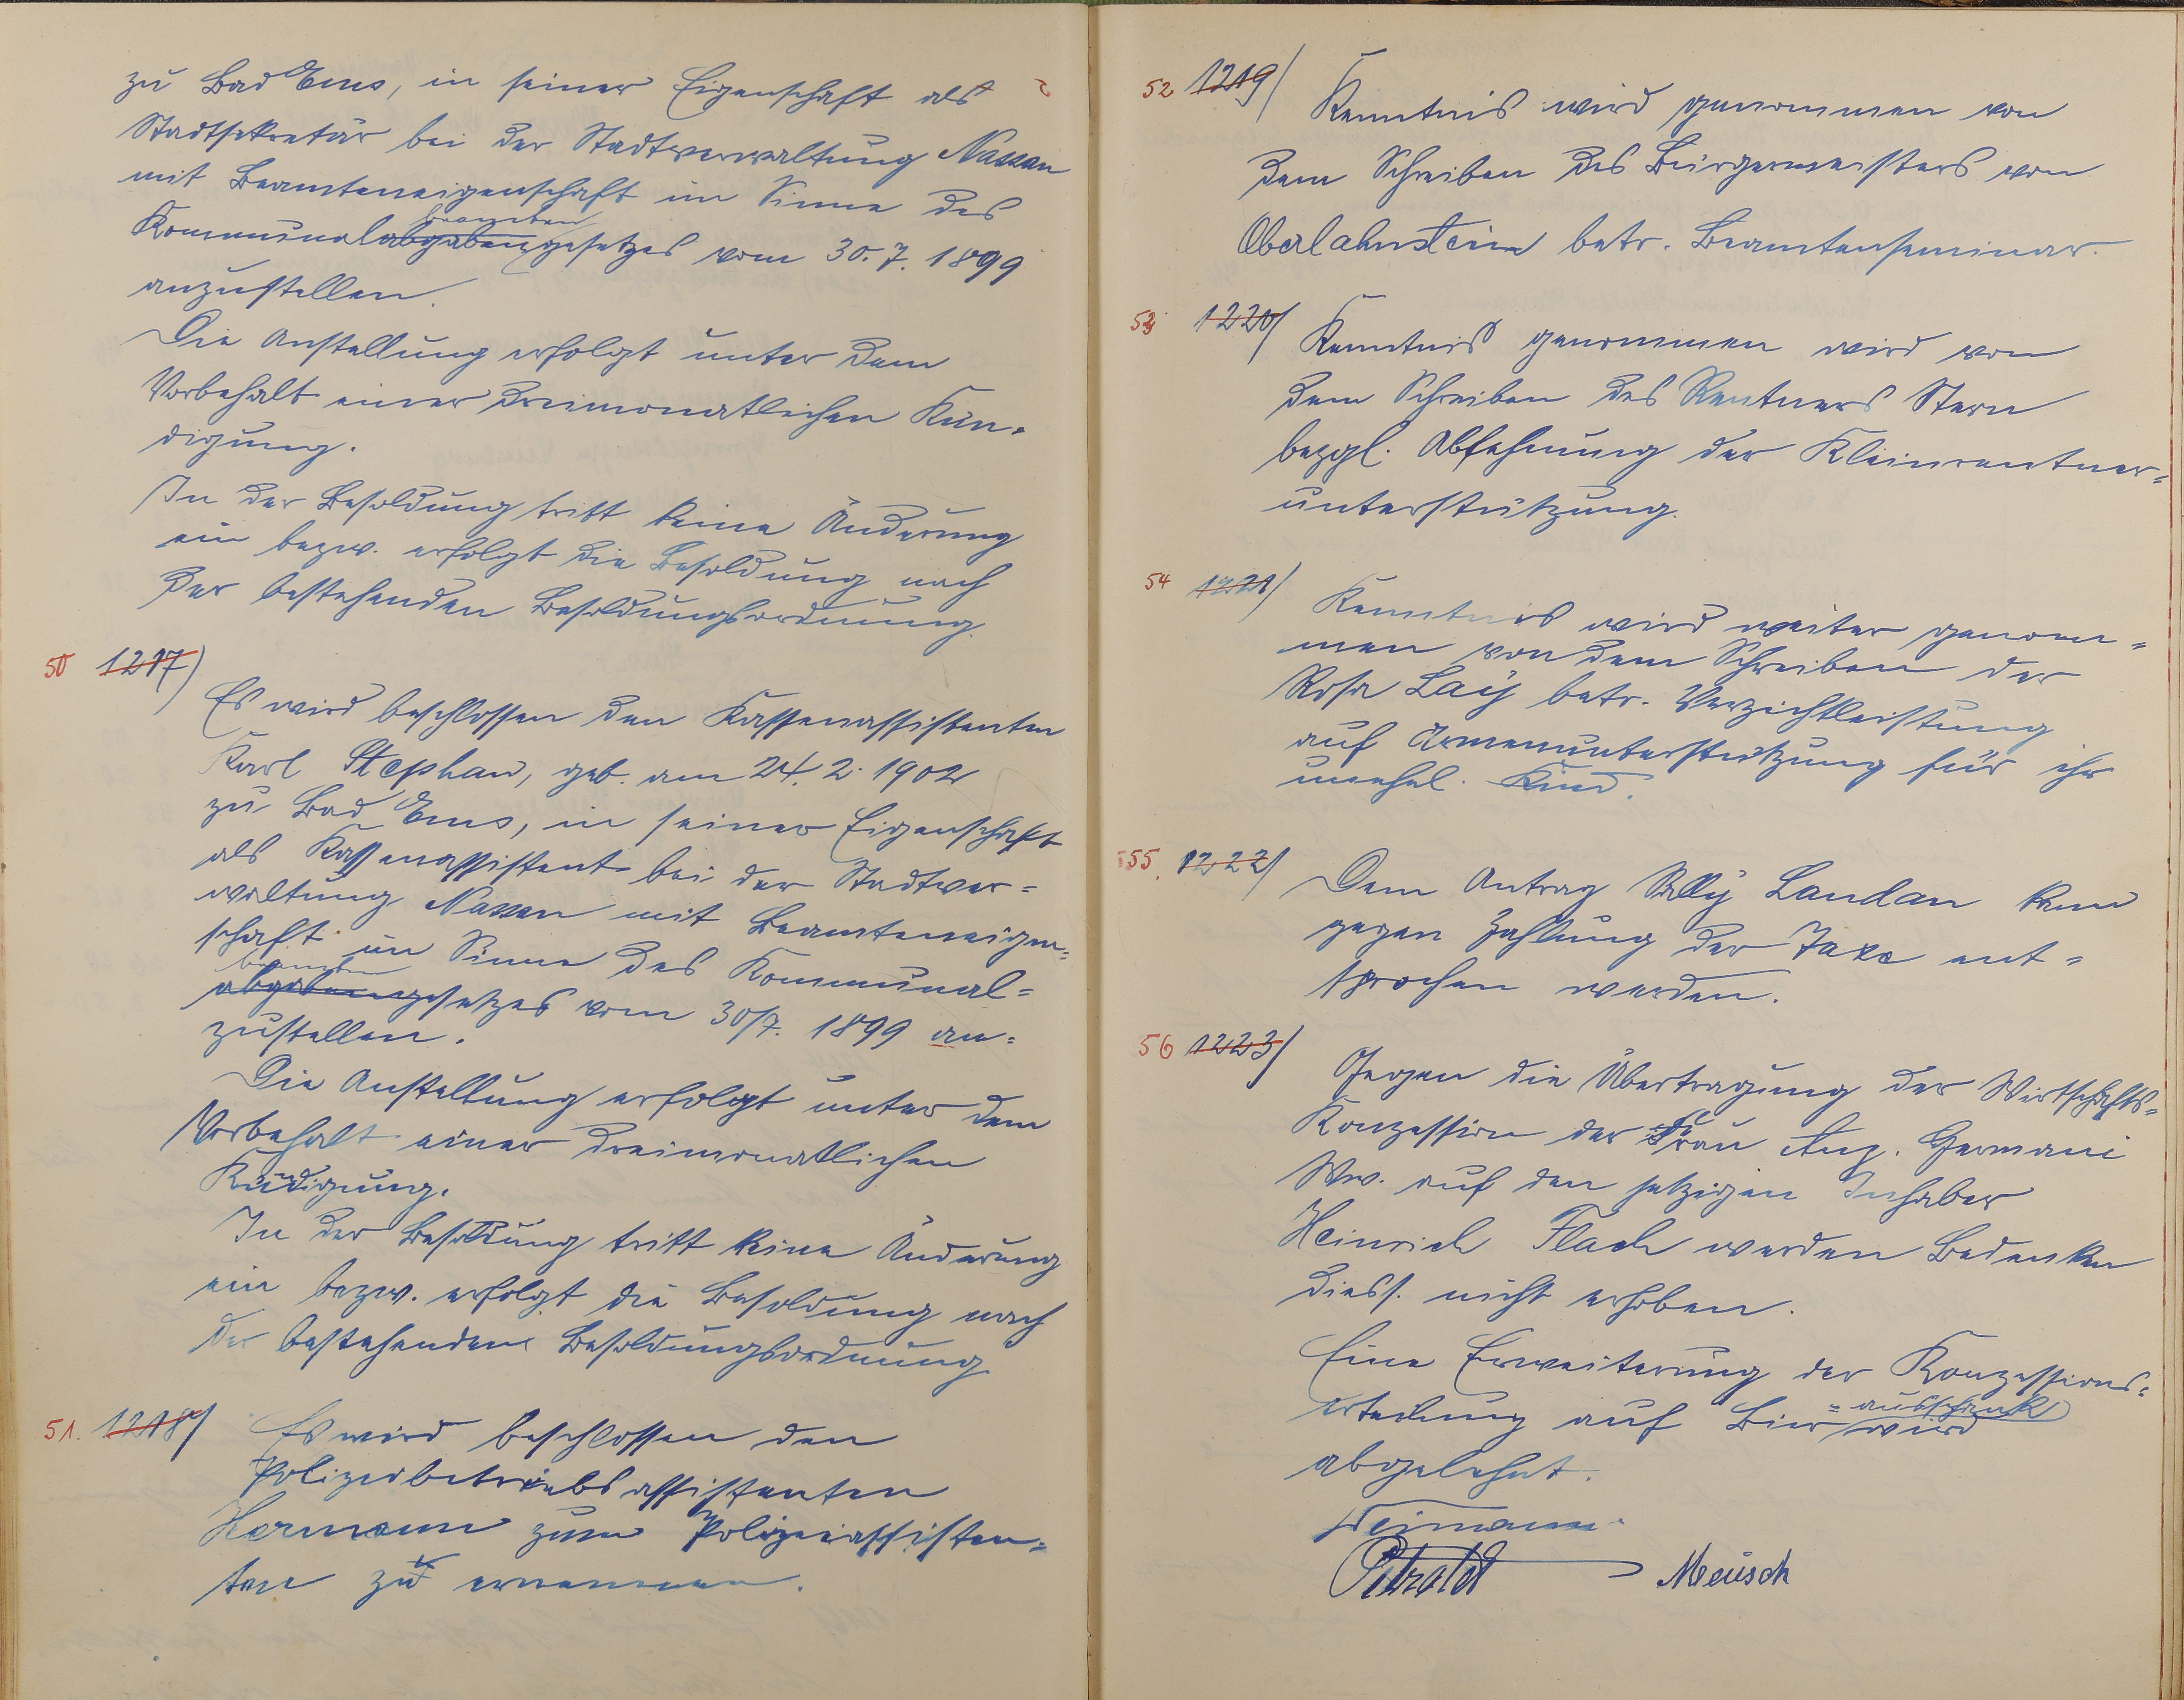 zu Bad Ems, in seiner Eigenschaft als
Stadtsekretär bei der Stadtverwaltung Nassau
mit Beamteneigenschaft im Sinne des
beamten
Kommunalabgabengesetzes vom 30.7.1899
anzustellen.
Die Anstellung erfolgt unter dem
Vorbehalt einer dreimonatlichen Kün-
digung.
In der Besoldung tritt keine Änderung
ein bezw. erfolgt die Besoldung nach
der bestehenden Besoldungsordnung.
50 1217)
Es wird beschlossen den Kassenassistenten
Karl Stephan, geb. am 24.2.1902
zu Bad Ems, in seiner Eigenschaft
als Kassenassistent bei der Stadtver=
waltung Nassau mit Beamteneigen=
schaft im Sinne des Kommunal=
beamten
abgabengesetzes vom 30/7. 1899 an=
zustellen.
Die Anstellung erfolgt unter dem
Vorbehalt einer dreimonatlichen
Kündigung.
In der Besoldung tritt keine Änderung
ein bezw. erfolgt die Besoldung nach
der bestehenden Besoldungsordnung.
51. 1218/ Es wird beschlossen den
Polizeibetriebsassistenten
Hermann zum Polizeiassisten=
ten zu ernennen.
52 1219/ Kenntnis wird genommen von
dem Schreiben des Bürgermeisters von
Oberlahnstein betr. Beamtenseminar.
53 1220/ Kenntnis genommen wird von
dem Schreiben des Rentners Stern
bezgl. Ablehnung der Kleinrentner=
unterstützung.
54 1221/ Kenntnis wird weiter genom=
men von dem Schreiben der
Rosa Lay betr. Verzichtleistung
auf Armenunterstützung für ihr
unehel. Kind.
55. 1222/ Dem Antrag Sally Landau kann
gegen Zahlung der Taxe ent=
sprochen werden.
56 1223/ Gegen die Übertragung der Wirtschafts=
Konzession der Frau Aug. Germani
Ww. auf den jetzigen Inhaber
Heinrich Flach werden Bedenken
diess. nicht erhoben.
Eine Erweiterung der Konzessions=
=ausschank
erteilung auf Bier wird
abgelehnt.
Meusch